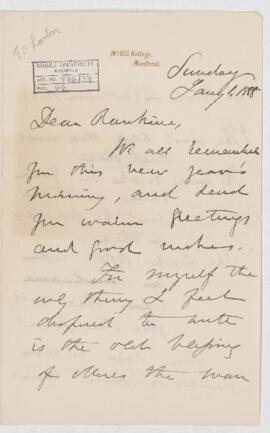 To London
McGill College,
Montreal.
McGILL UNIVERSITY
ARCHIVES
ACC. NO.
REF.
Sunday
Jany 1. 1888
Dear Rankine,
We all remember
you this new year's
morning, and send
you warm greetings
and good wishes.
For myself the
only thing I feel
disposed to write
is the old blessing
of the man